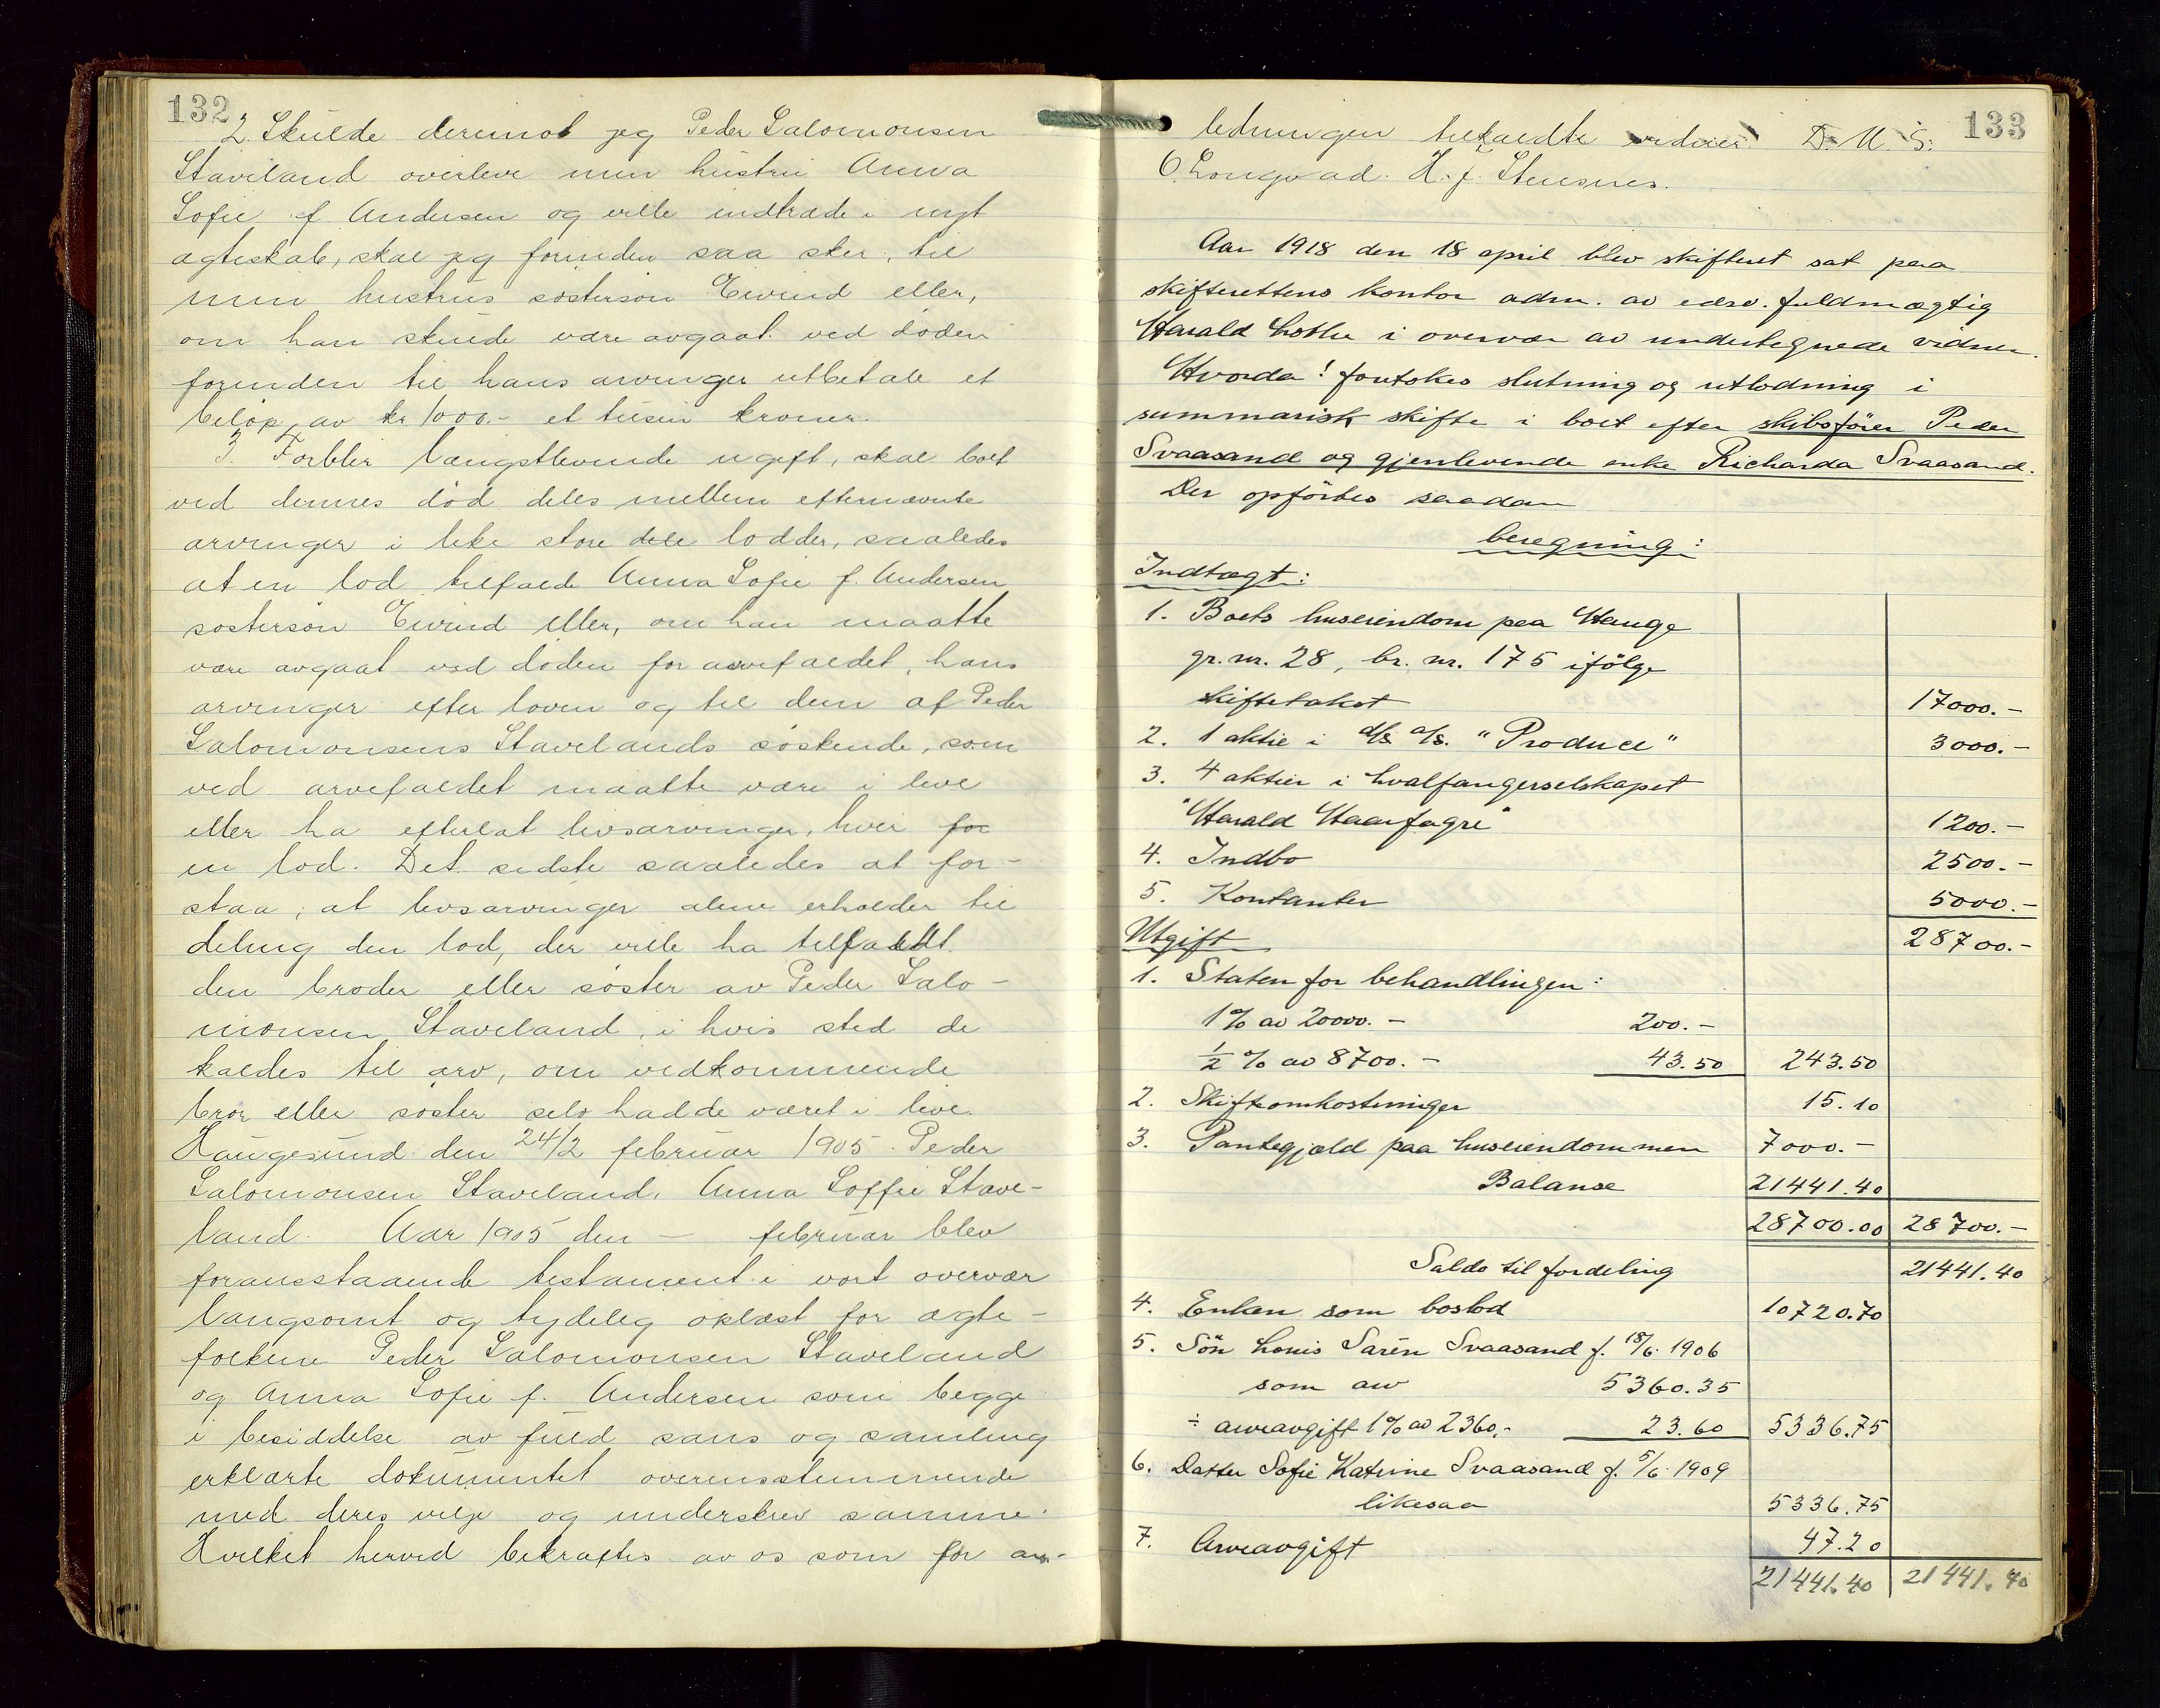 132
2. Skulde derimot jeg Peder Salomonsen
Staveland overleve min hustru Anna
Sofie f. Andersen og ville indtræde i nyt
ægteskab, skal jeg forinden saa sker, til
min hustrus søstersøn Eivind eller,
om han skulde være avgaat ved døden
forinden til hans arvinger utbetale et
beløp av kr. 1000.- et tusin kroner.
3. Forblir længstlevende ugift, skal boet
ved dennes død deles mellem efternævnte
arvinger i like store dele lodder, saaledes
at en lod tilfalde Anna Sofie f. Andersen
søstersøn Eivind eller, om han maatte
være avgaat ved døden for arvefaldet, hans
arvinger efter loven og til dem af Peder
Salomonsens Stavelands søskende, som
ved arvefaldet maatte være i live
eller ha efterlat livsarvinger, hver for
en lod. Det sidste saaledes at for-
staa, at livsarvinger alene erholder til
deling den lod, der ville ha tilfaldt
den broder eller søster av Peder Salo-
monsen Staveland, i hvis sted de
kaldes til arv, om vedkommende
bror eller søster selv hadde været i live.
Haugesund den 24/2 februar 1905. Peder
Salomonsen Staveland. Anna Soffie Stave-
land. Aar 1905 den — februar blev
foranstaaende testament i vort overvær
langsomt og tydelig oplæst for ægte-
folkene Peder Salomonsen Staveland
og Anna Sofie f. Andersen som begge
i besiddelse av fuld sans og samling
erklærte dokumentet overensstemmende
med deres vilje og underskrev samme.
Hvilket herved bekræftes av os som for an-
133
ledningen tilkaldte vidner D. U. S.
O. Longvad. H. J. Stensnes.
Aar 1918 den 18 april blev skifteret sat paa
skifterettens kontor adm. av edsv. fuldmægtig
Harald Lothe i overvær av undertegnede vidner.
Hvorda! foretokes slutning og utlodning i
summarisk skifte i boet efter skibsfører Peder
Svaasand og gjenlevende enke Richarda Svaasand.
Der opførtes saadan
beregning:
Indtægt:
1. Boets huseiendom paa Hauge
gr. nr. 28, br. nr. 175 ifølge
skiftetakst 17000.-
2. 1 aktie i d/s a/s. "Produce" 3000.-
3. 4 aktier i hvalfangerselskapet
"Harald Haarfagre" 1200.-
4. Indbo 2500.-
5. Kontanter 5000.-
Utgift 28700.-
1. Staten for behandlingen:
1% av 20000.- 200.-
½ % av 8700.- 43.50 243.50
2. Skifteomkostninger 15.10
3. Pantegjæld paa huseiendommen 7000.-
Balanse 21441.40
28700.00 28700.-
Saldo til fordeling 21441.40
4. Enken som boslod 10720.70
5. Søn Louis Sarén Svaasand f. 18/6. 1906
som arv 5360.35
÷ arveavgift 1% av 2360.- 23.60 5336.75
6. Datter Sofie Katrine Svaasand f. 5/6. 1909
likesaa 5336.75
7. Arveavgift 47.20
21441.40 21441.40